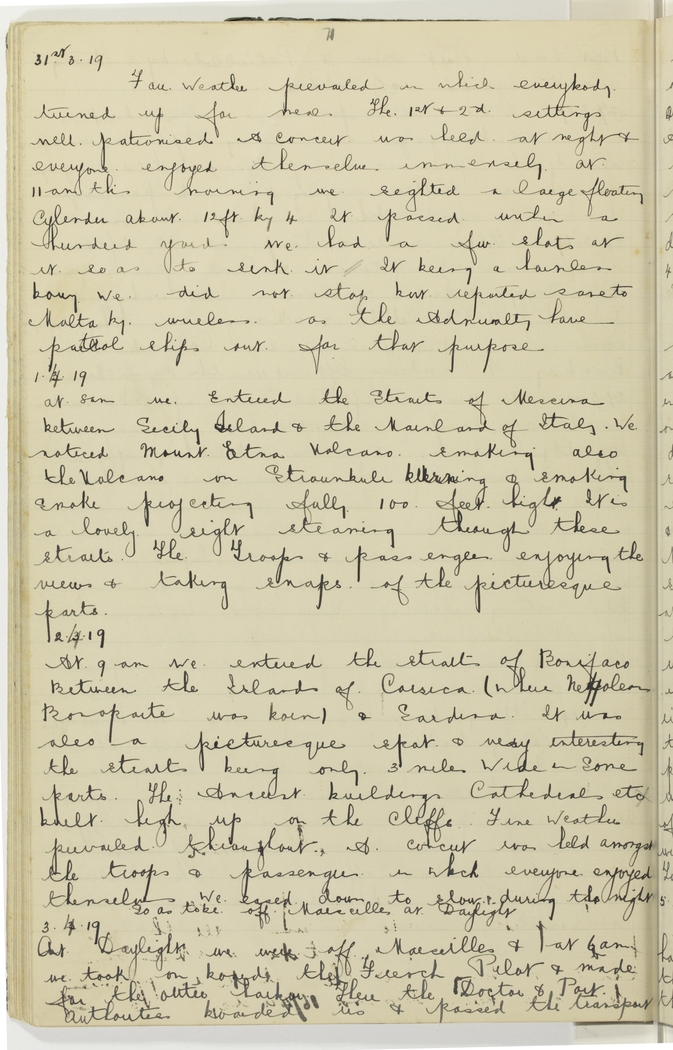 71
31st 3.19
Fair Weather prevailed in which everybody
turned up for meals The 1st & 2d sittings
well patronised A concert was held at night &
everyone enjoyed themselves immensely at
11am this morning we sighted a large floating
Cylender about 12ft by 4 It passed within a
hundred yards We had a few shots at
it so as to sink it It being a harmless
bouy We did not stop but reported same to
Malta by wireless as the Admiralty have
patrol ships out for that purpose
1.4.19
at 8am we Entered the Straits of Messina
between Secily Island & the Mainland of Italy. We
noticed Mount Etna Volcano smoking also
the Volcano on Straumbule burning & smoking
smoke projecting fully 100 feet high It is
a lovely sight steaming through these
straits. The Troops & passengers enjoying the
views & taking snaps of the picturesque
parts.
2.4.19
At 9 am We entered the straits of Bonifaco
Between the Islands of Corsica (where Nepoleon
Bonoparte was born) & Sardina. It was
also a picturesque spot & very interesting
the straits being only 3 miles Wide in Some
parts. The Ancient buildings Cathedrals etc
built high up on the Cliffs. Fine Weather
prevailed throughout. A concert was held amongst
the troops & passengers in which everyone enjoyed
themselves We eased down to slow during the night
So as take off Marseilles at Daylight
3.4.19
At Daylight we were off Marseilles & at 6am
we took on board the French Pilot & made
for the outer Harbour Here the Doctor & Port
Authorities boarded us & passed the transport